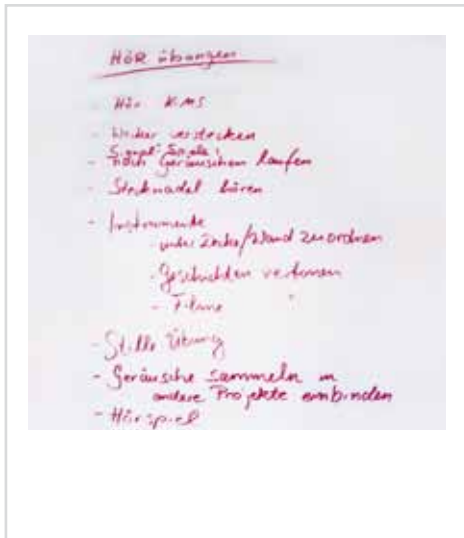 HÖR übungen
Hör KIMS
- Wecker verstecken
Signal Spiele!
- nach Geräuschen laufen
- Stecknadel hören
- Instrumente
- unter Decke/Wand zuordnen
- Geschichten vertonen
- Filme "
- Stille Übung
- Geräusche sammeln
andere Projekte einbinden
- Hörspiel